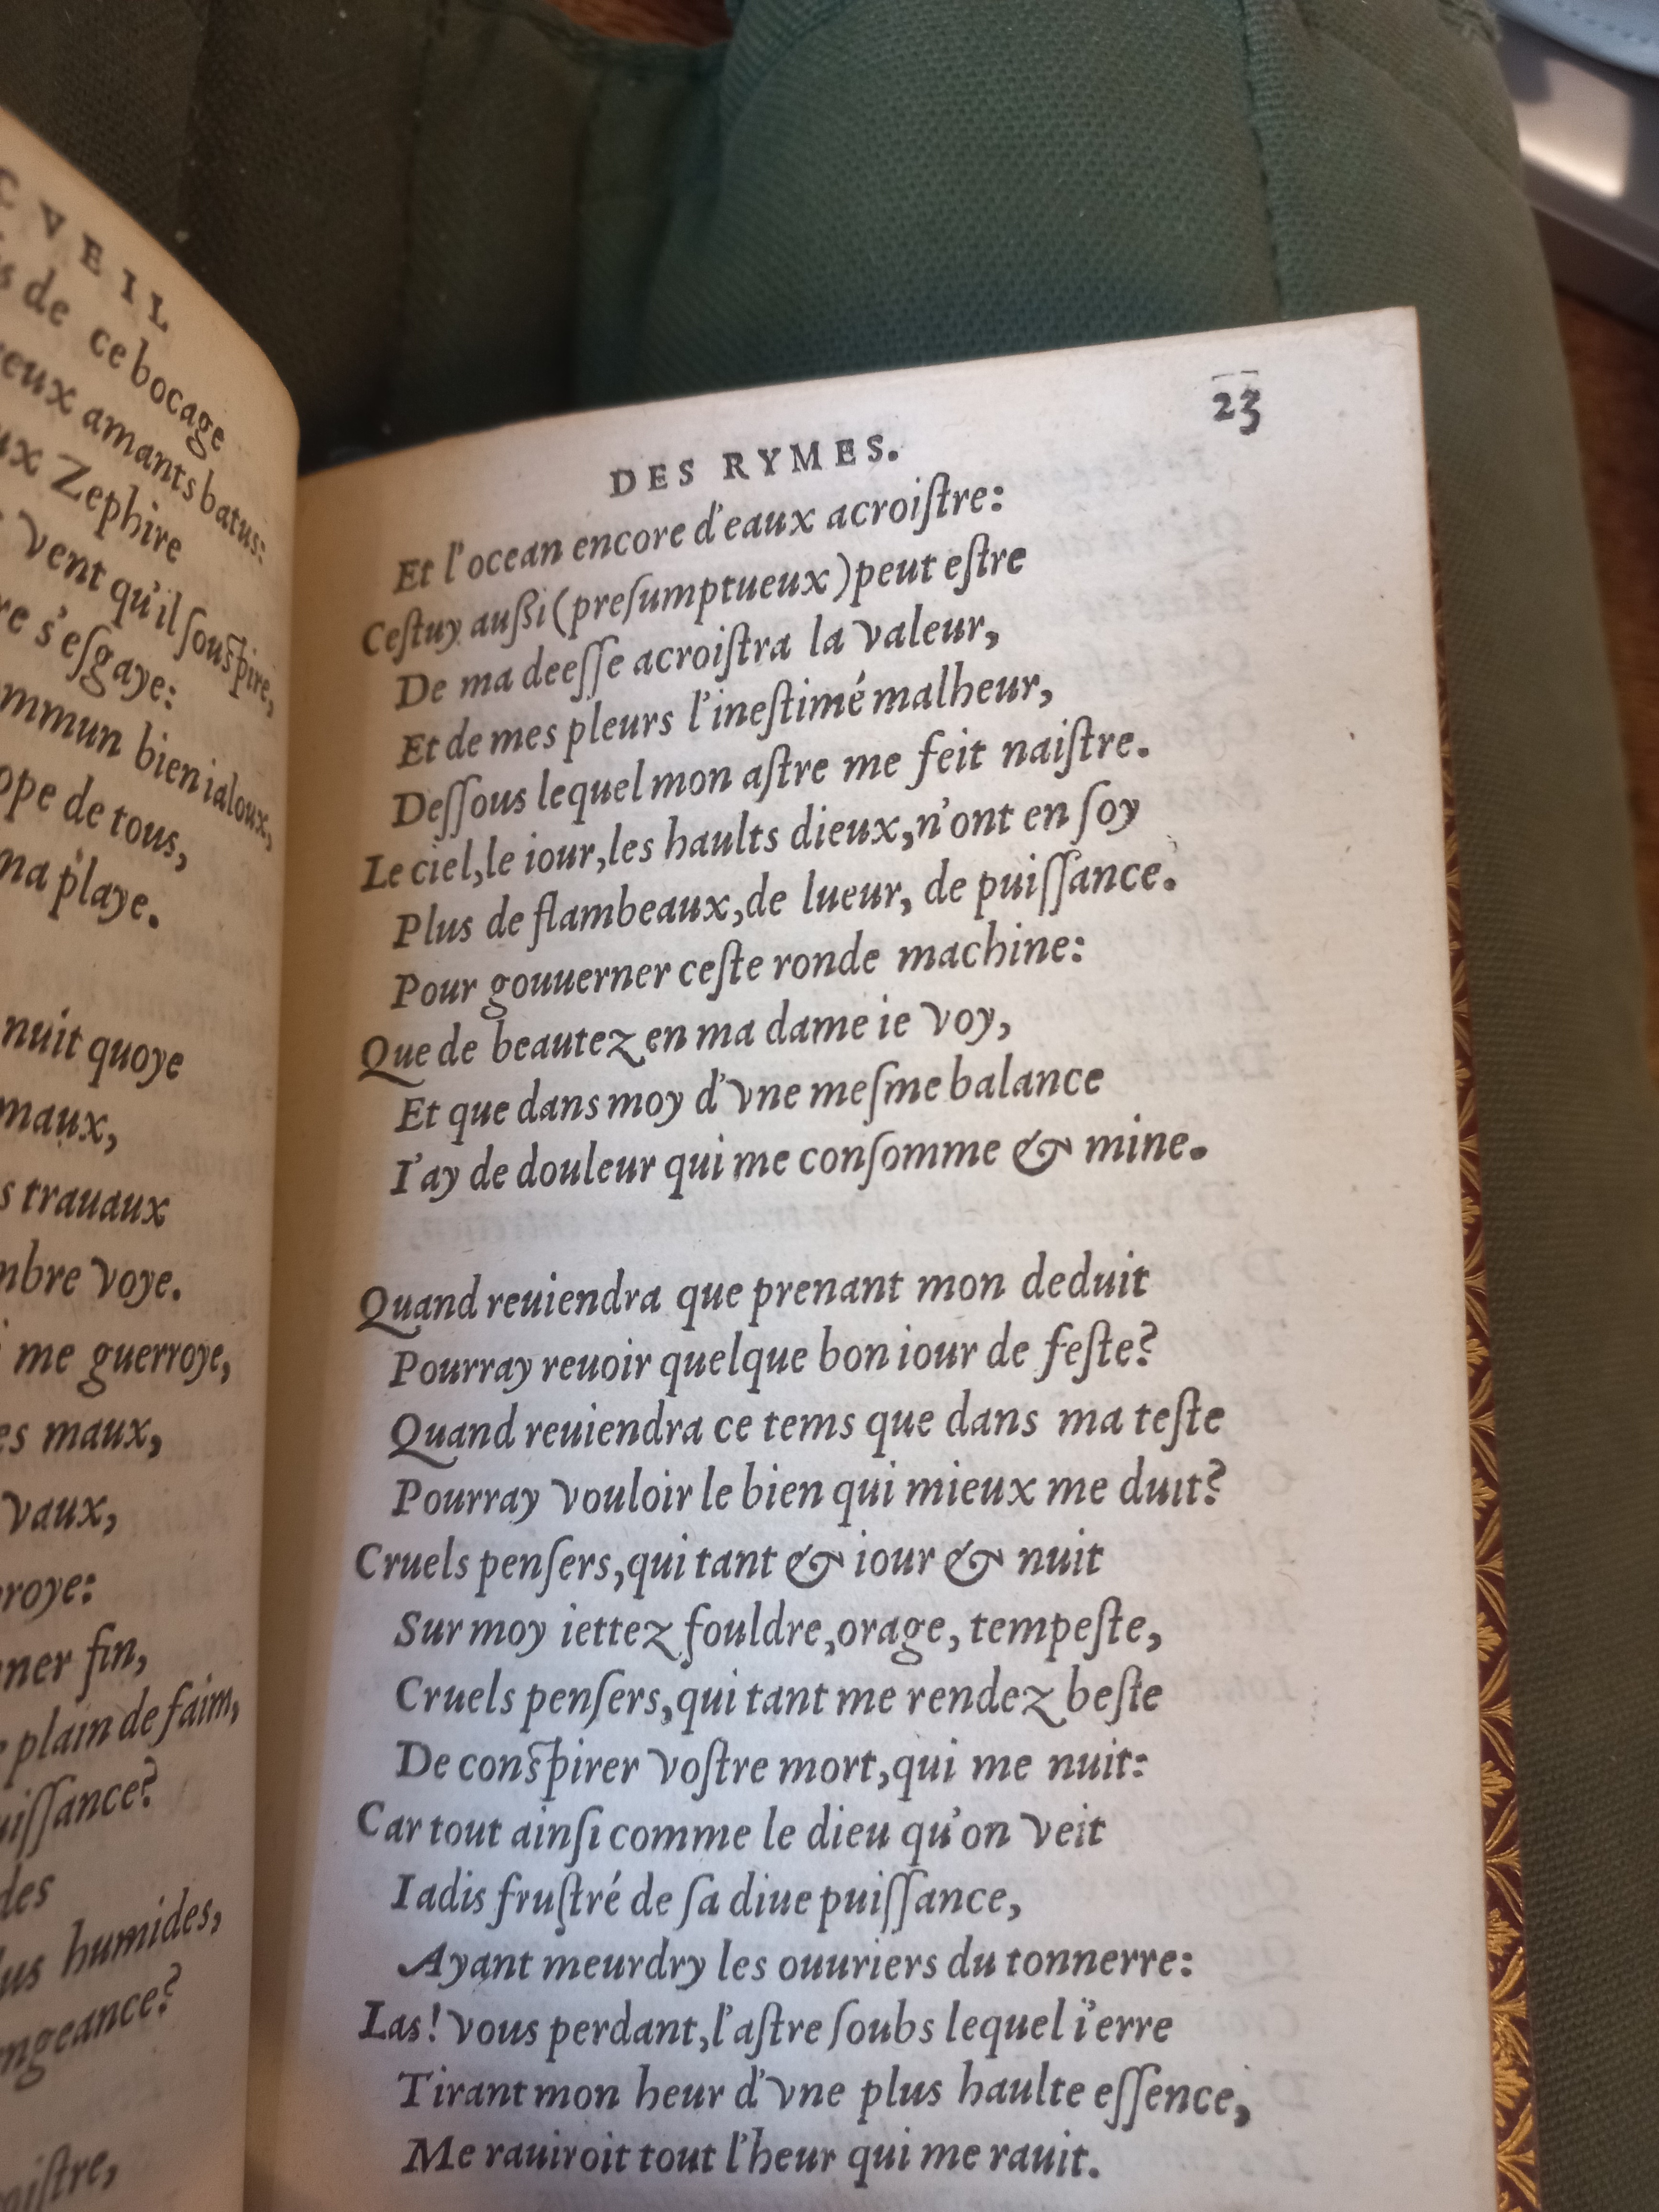 CVEIL
de ce bocage
amants batus:
Zephire
vent qu'il souspire,
s'esgaye:
bien ialoux,
de tous,
playe.
nuit quoye
maux,
trauaux
voye.
me guerroye,
maux,
vaux,
fin,
plain de faim,
humides,
DES RYMES.
23
Et l'ocean encore d'eaux acroiſtre:
Ceſtuy außi (preſumptueux) peut eſtre
De ma deeſſe acroiſtra la valeur,
Et de mes pleurs l'ineſtimé malheur,
Deſſous lequel mon aſtre me feit naiſtre.
Le ciel, le iour, les haults dieux, n'ont en ſoy
Plus de flambeaux, de lueur, de puiſſance.
Pour gouuerner ceſte ronde machine:
Que de beautez en ma dame ie voy,
Et que dans moy d'vne meſme balance
I'ay de douleur qui me conſomme & mine.
Quand reuiendra que prenant mon deduit
Pourray reuoir quelque bon iour de feſte?
Quand reuiendra ce tems que dans ma teſte
Pourray vouloir le bien qui mieux me duit?
Cruels penſers, qui tant & iour & nuit
Sur moy iettez fouldre, orage, tempeſte,
Cruels penſers, qui tant me rendez beſte
De conſpirer voſtre mort, qui me nuit:
Car tout ainſi comme le dieu qu'on veit
Iadis fruſtré de ſa diue puiſſance,
Ayant meurdry les ouuriers du tonnerre:
Las! vous perdant, l'aſtre ſoubs lequel i'erre
Tirant mon heur d'vne plus haulte eſſence,
Me rauiroit tout l'heur qui me rauit.